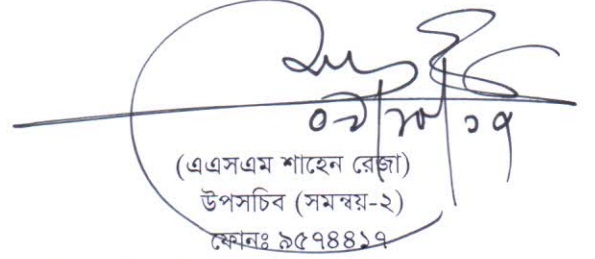 ০৯/১০/১৭
(এএসএম শাহেন রেজা)
উপসচিব (সমন্বয়-২)
ফোনঃ ৯৫৭৪৪১৭